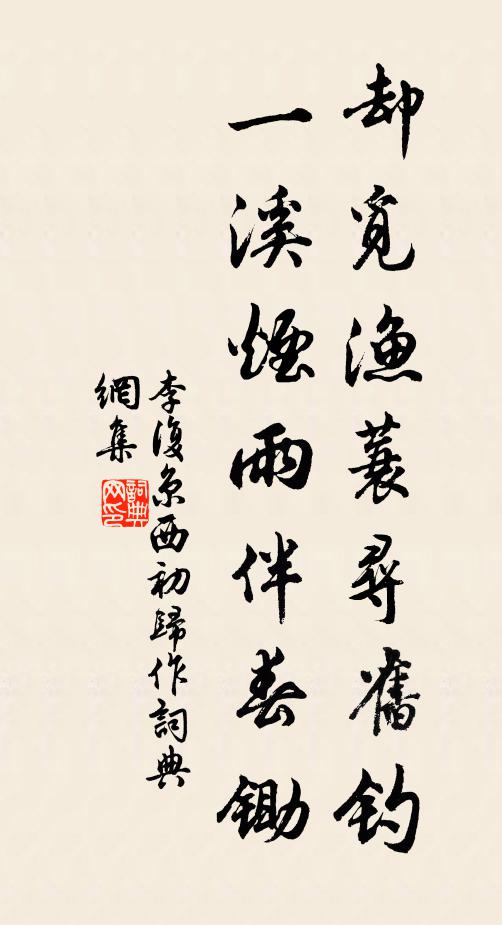 却覓漁蓑尋舊钓
一溪煙雨伴春锄
李復京西初歸作詞典
網集
詞典
网印